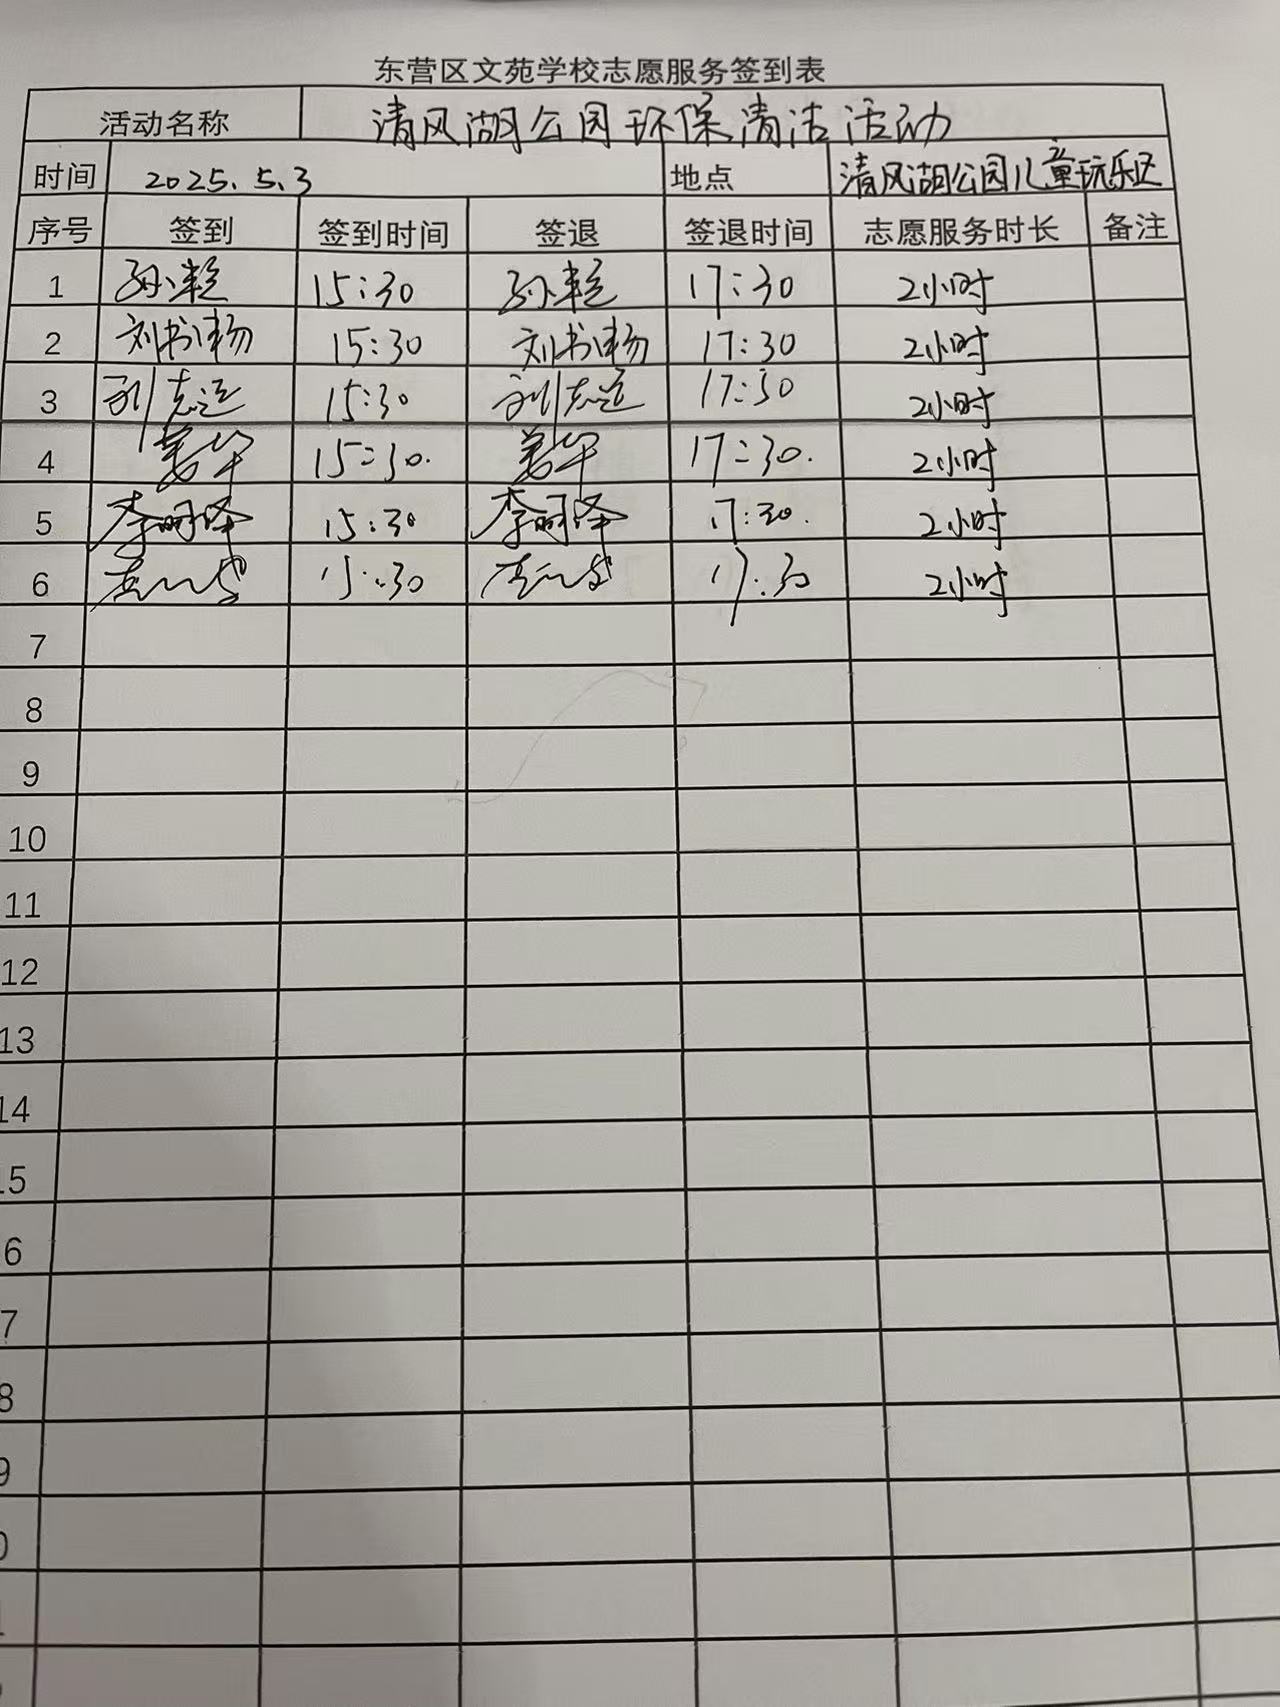 东营区文苑学校志愿服务签到表
活动名称 清风湖公园环保清洁活动
时间 2025.5.3 地点 清风湖公园儿童玩乐区
序号 签到 签到时间 签退 签退时间 志愿服务时长 备注
1 15:30 17:30 2小时
2 刘书 15:30 刘书 17:30 2小时
3 刘志远 15:30 刘志远 17:30 2小时
4 姜华 15:30. 姜华 17:30. 2小时
5 李明泽 15:30 李明泽 17:30. 2小时
6 15:30 17:30 2小时
7
8
9
10
11
12
13
14
15
6
7
8
9
0